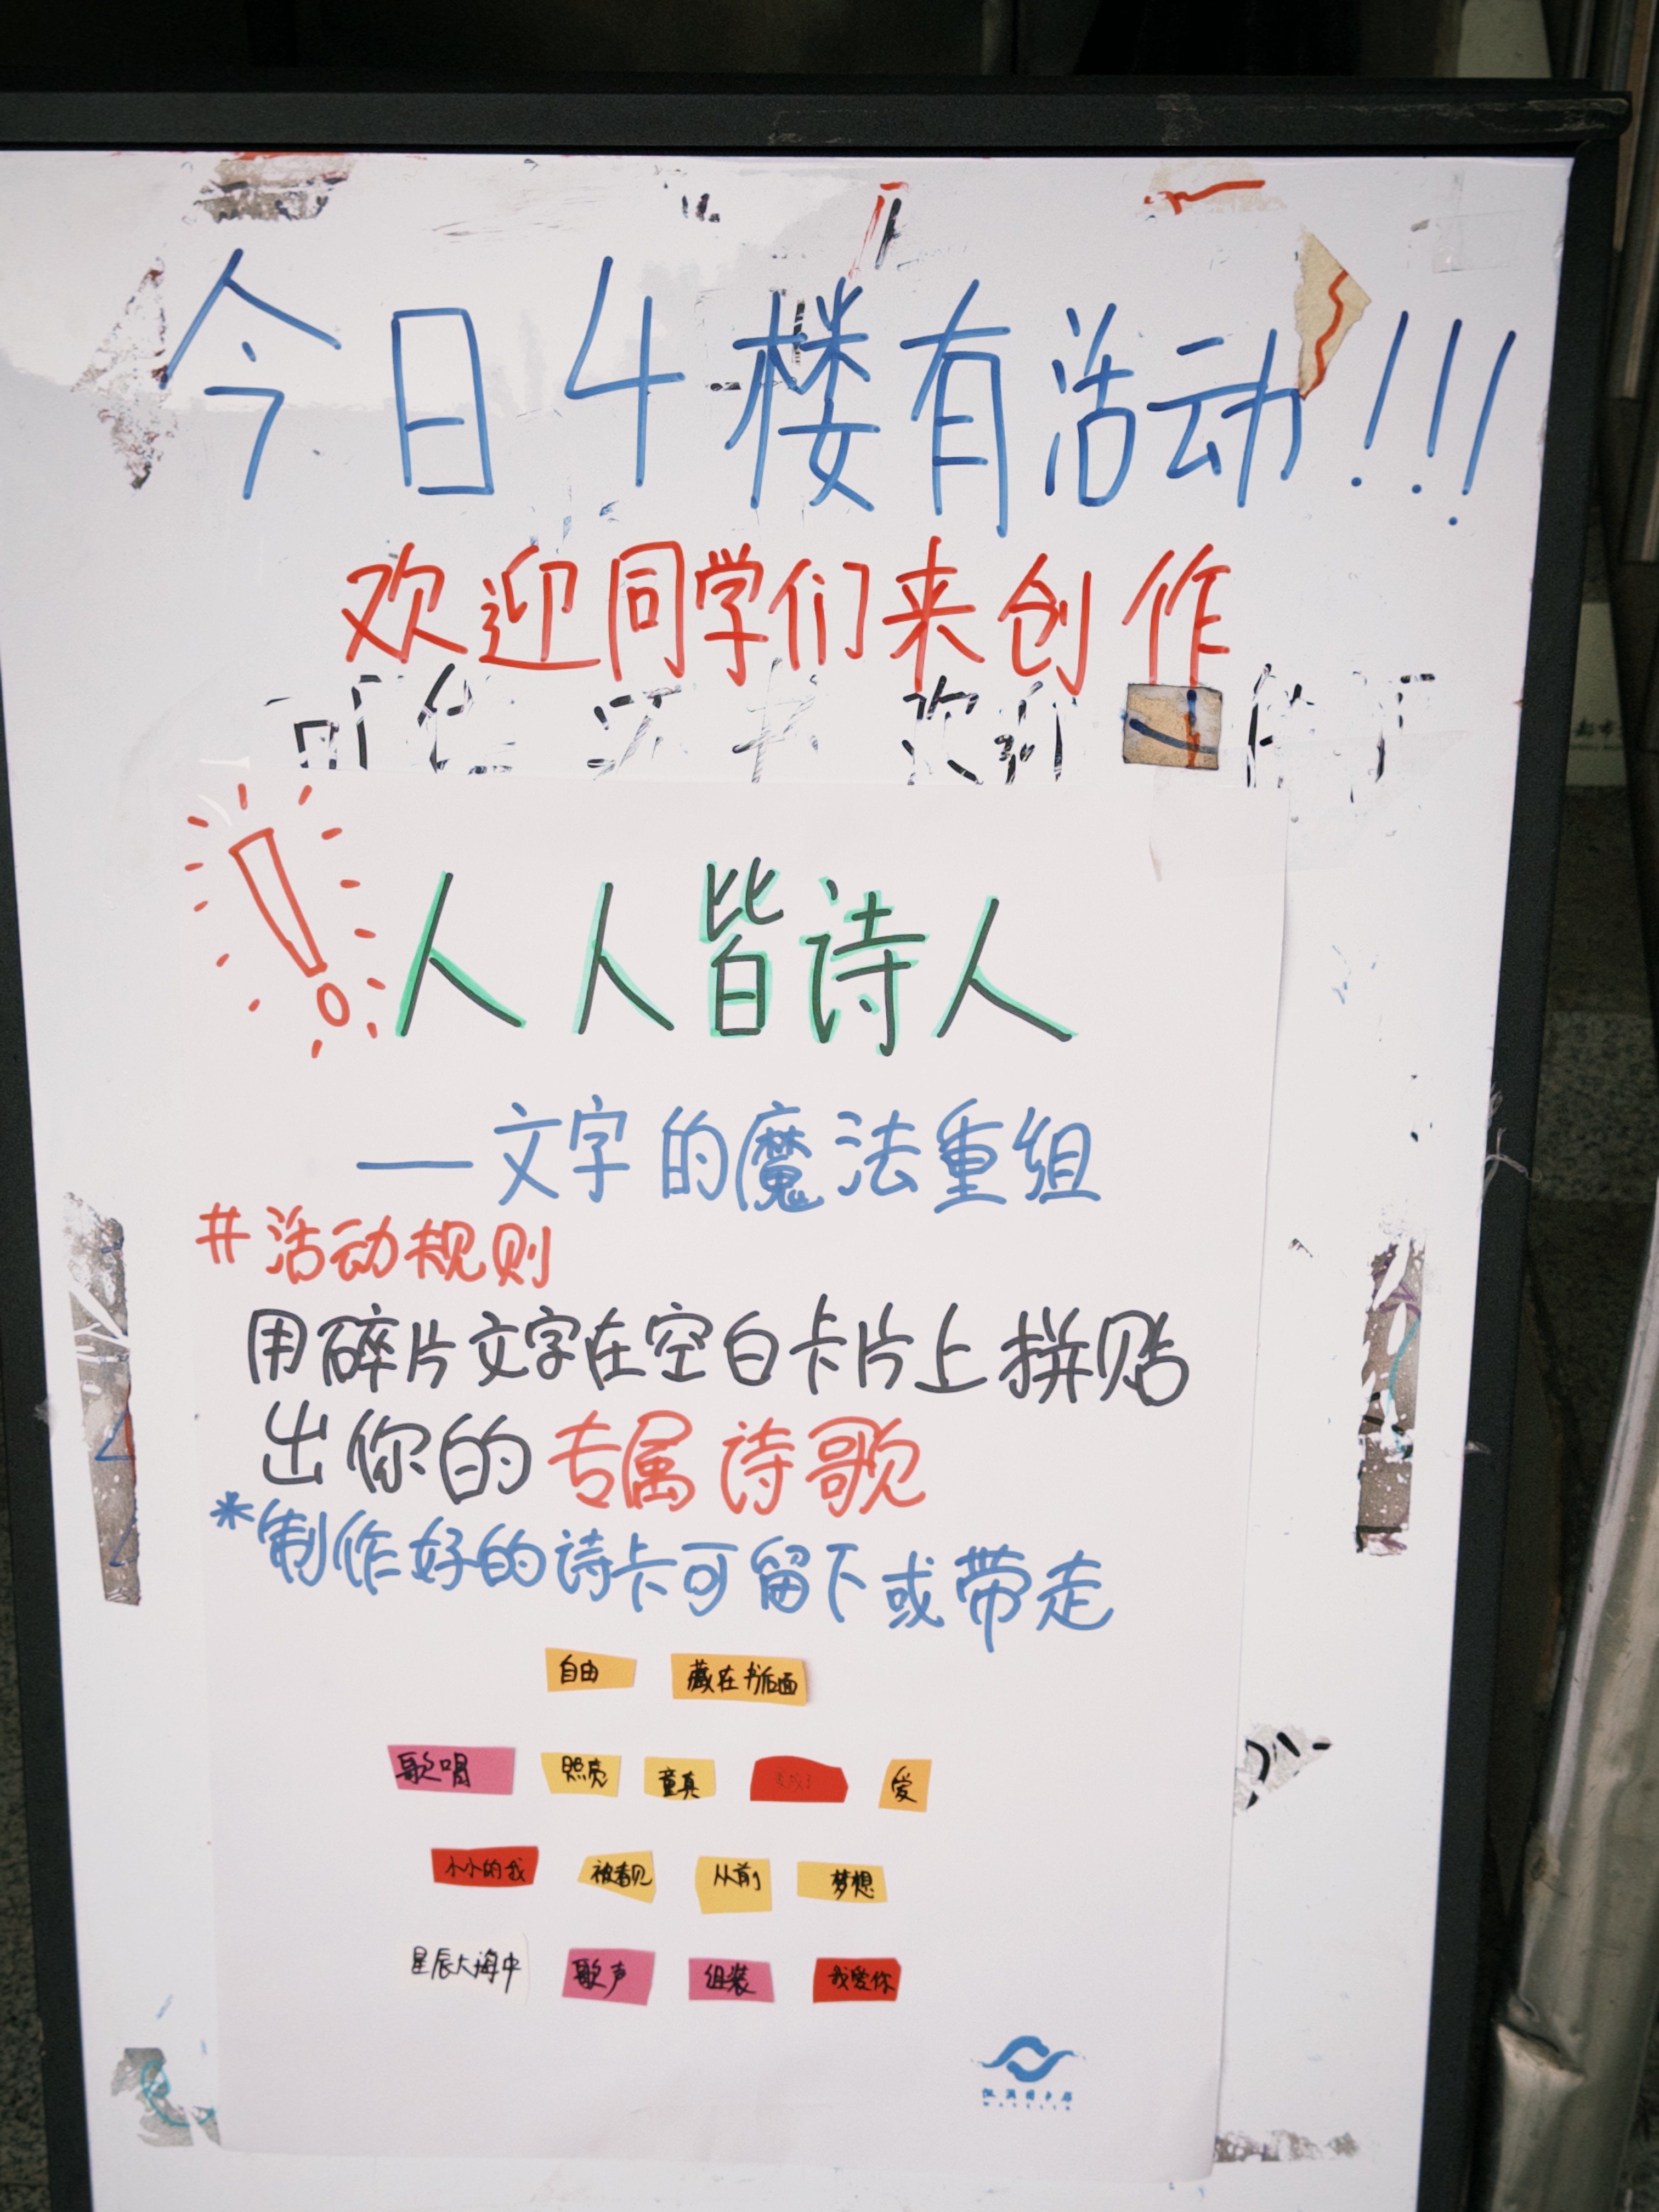 今日4楼有活动!!!
欢迎同学们来创作
人人皆诗人
——文字的魔法重组
#活动规则
用碎片文字在空白卡片上拼贴
出你的专属诗歌
*制作好的诗卡可留下或带走
自由 藏在书后面
歌唱 照亮 童真 爱
小小的我 被看见 从前 梦想
星辰大海中 歌声 组装 我爱你